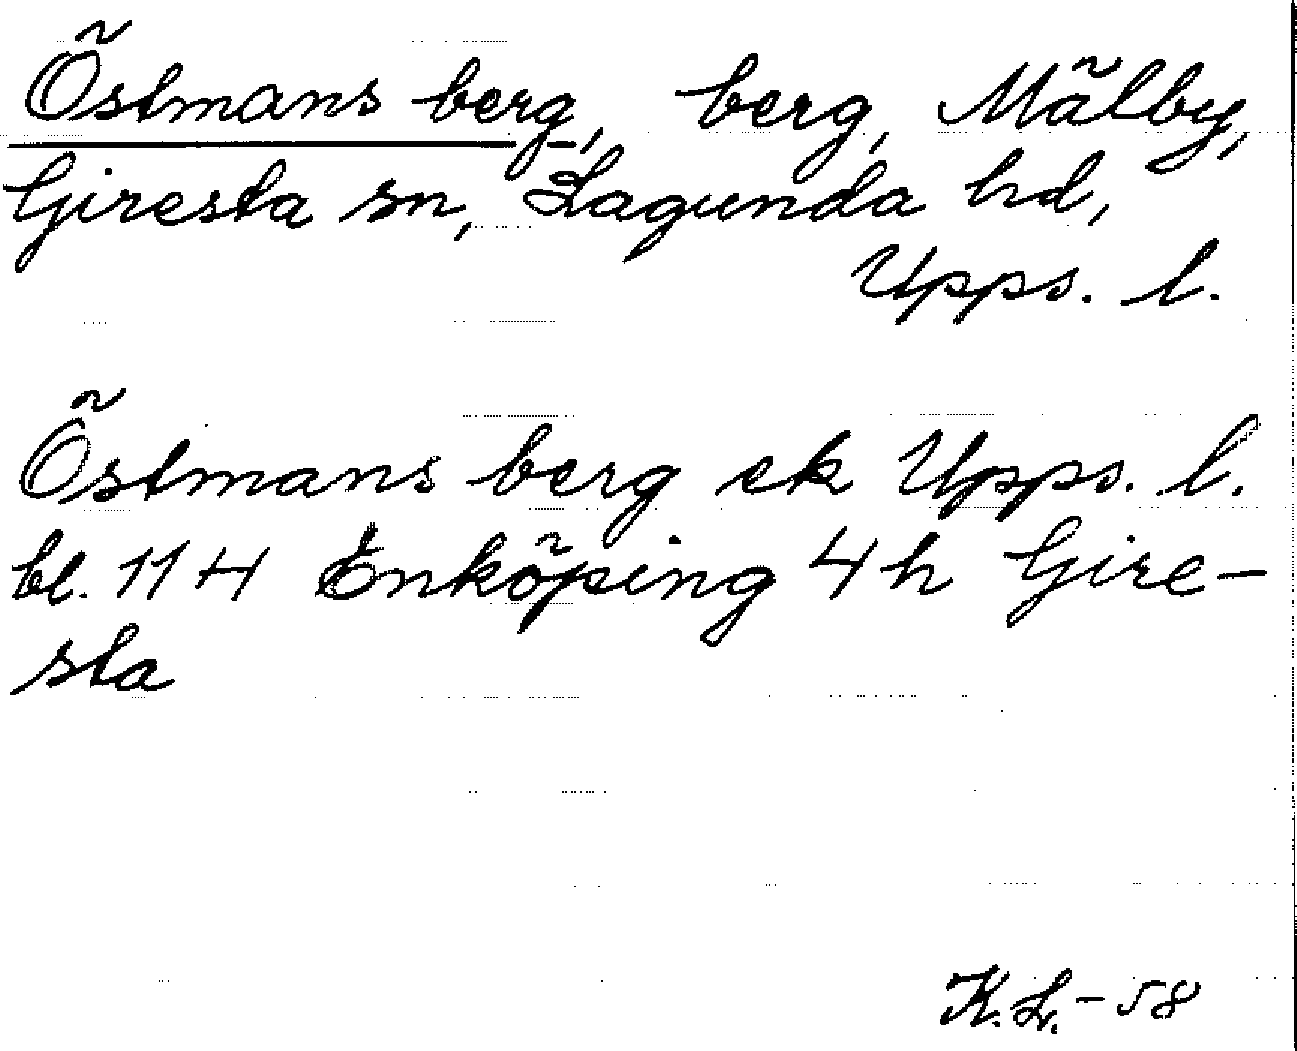 Östmans berg, berg, Mälby,
Giresta sn, Lagunda hd,
Upps. l.
Östmans berg ek Upps. l.
bl. 114 Enköping 4h Gire-
sta
K.L.-58